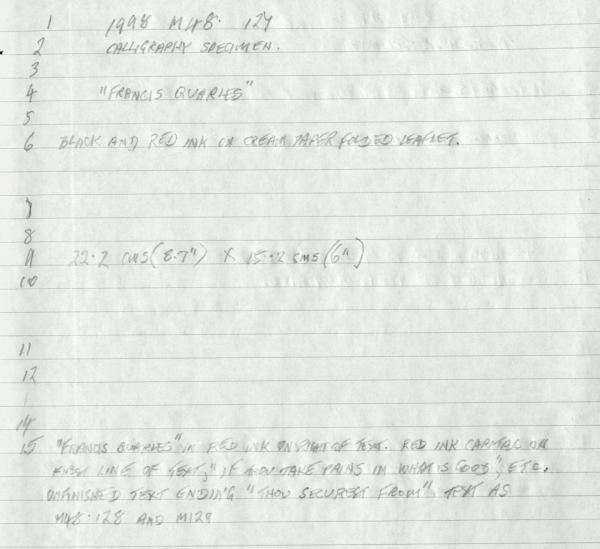 1 1998 M48. 124
2 CALLIGRAPHY SPECIMEN.
3
4 "FRANCIS QUARLES"
5
6 BLACK AND RED INK ON CREAM PAPER FOLDED LEAFLET.
7
8
9 22.2 cms (8.7") X 15.2 cms (6")
10
11
12
14
15 "FRANCIS QUARLES" IN RED INK ON RIGHT OF TEXT. RED INK CAPITAL ON
LINE OF TEXT, "IF THOU TAKE PAINS IN WHAT IS GOOD", ETC.
UNFINISHED TEXT ENDING "THOU SECUREST FROM" TEXT AS
M48.128 AND M129